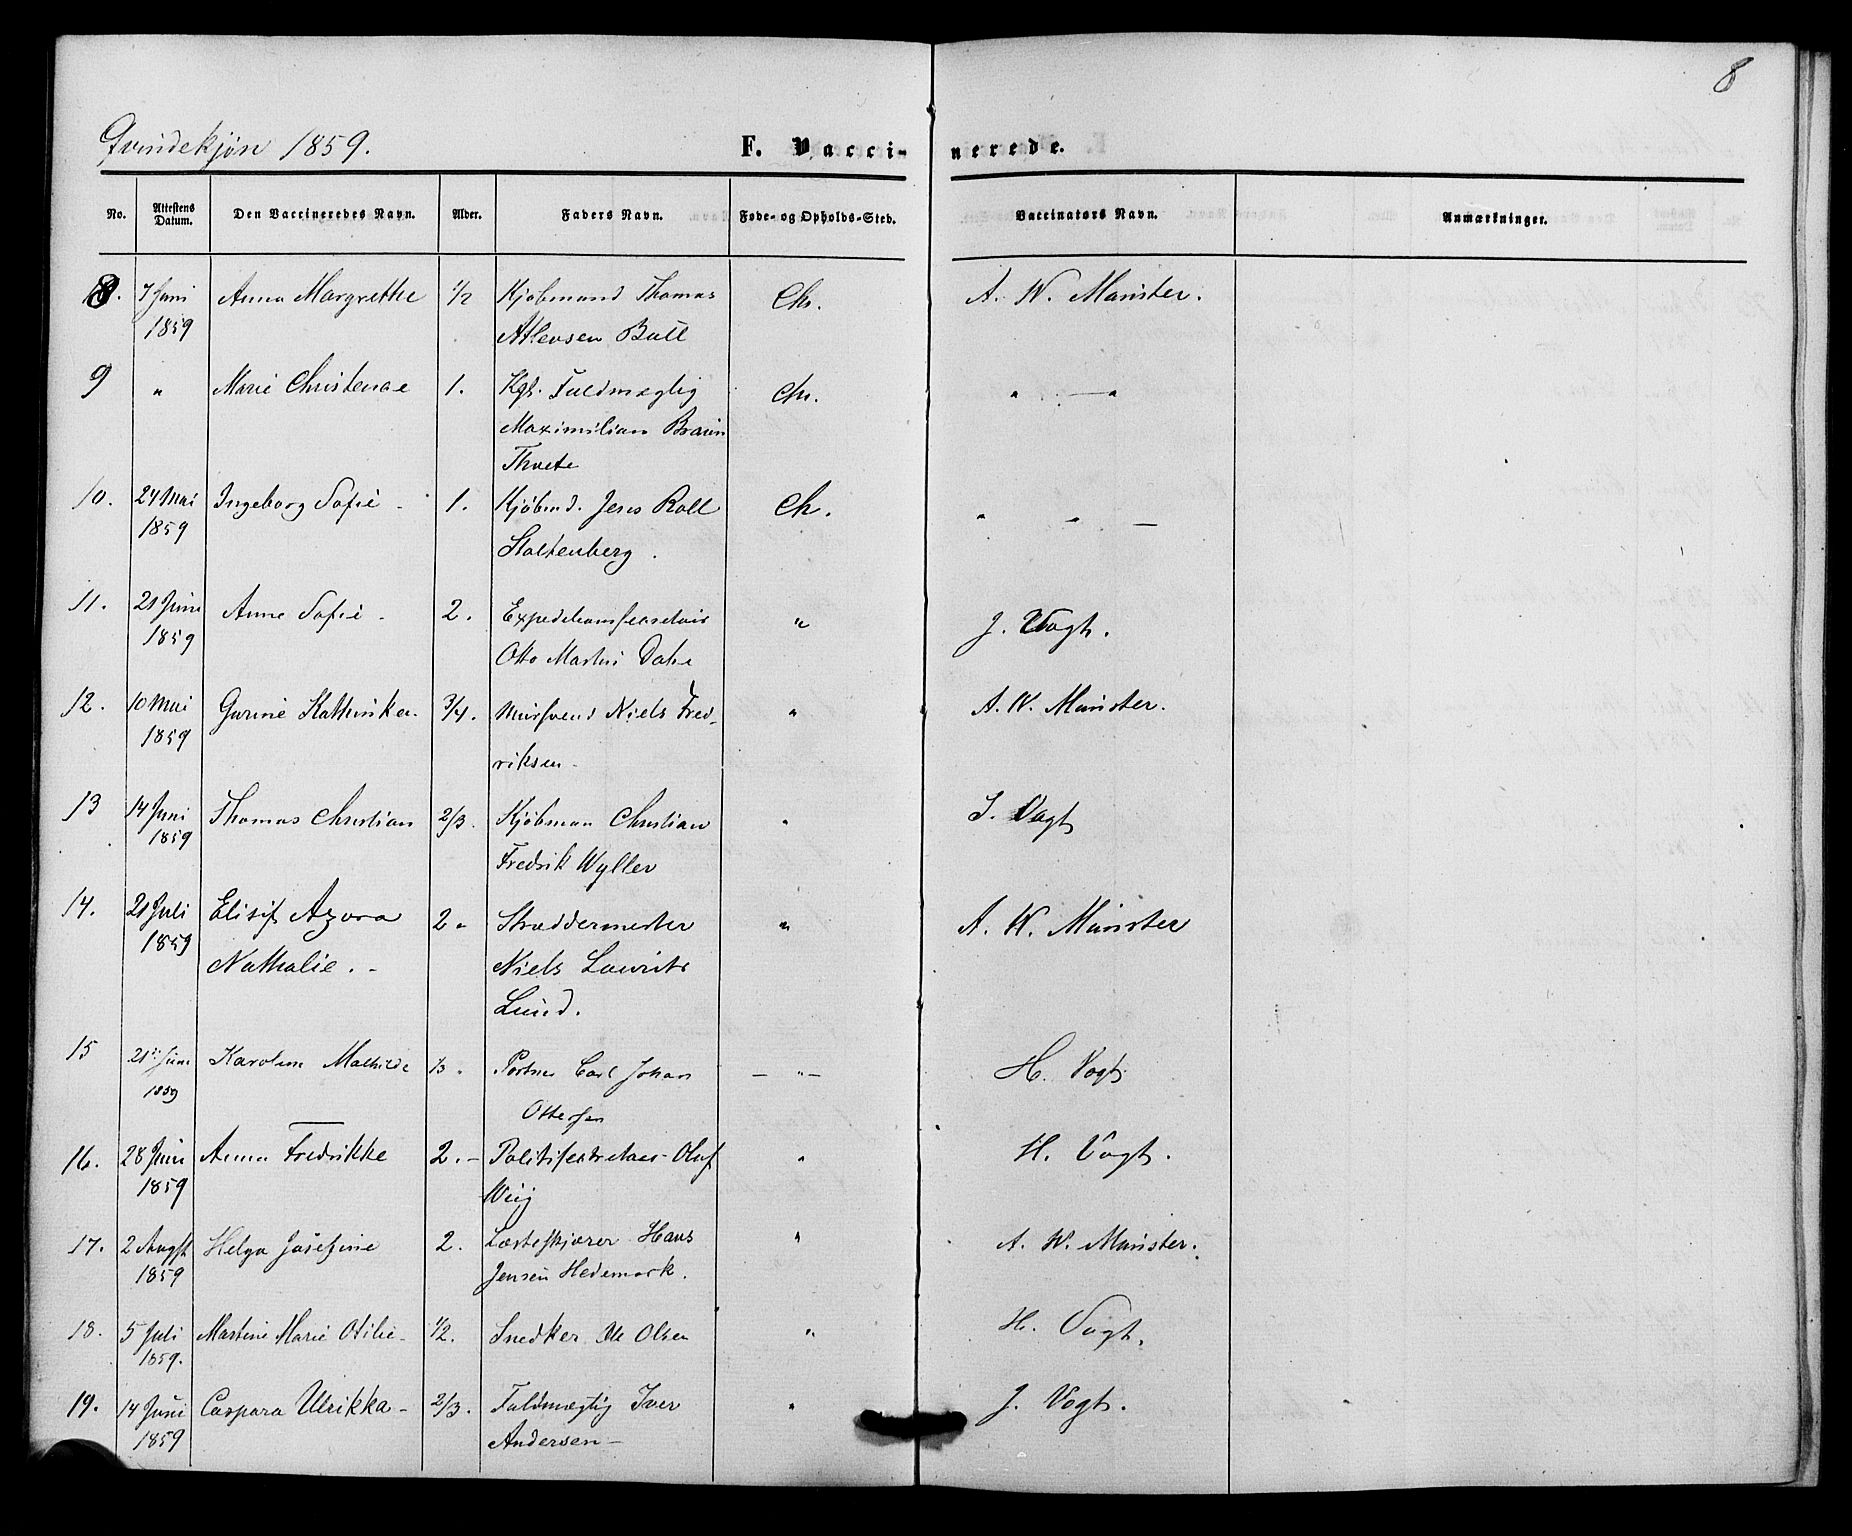 8
Qvindekjøn 1859.
F. Vacci-nerede.
No. Attestens Datum. Den Vaccineredes Navn. Alder. Faders Navn. Føde- og Opholds-Sted. Vaccinators Navn. Anmærkninger.
8. 7 Juni Anna Margrethe 1/2 Kjøbmand Thomas Chr. A. W. Münster.
1859 Bull
9 " Marie 1. Kgl. Fuldmægtig Chr. " — "
Maximilian Braun
Thvete
10. 24 Mai Ingeborg Sofie - 1. Kjøbmd. Jens Roll Ch. " " —
1859 Stoltenberg.
11. 21 Juni Anne Sofie - 2. Expeditionssecretair " J. Vogt.
1859 Otto Martin Dahl
12. 10 Mai Gurine Kathinka. 3/4. Mursvend Niels Fred- " A. W. Münster.
1859 riksen-
13 14 Juni Thomas Christian 2/3. Kjøbman Christian " J. Vogt
1859 Fredrik Wyller
14. 21 Juli Elisif Azora 2. Skræddermester " A. W. Münster
1859 Nathalie. - Niels Laurits
Lund.
15 21 Juni Karoline Mathilde Portner Carl Johan — " — H. Vogt
1859 Ottersen
16. 28 Juni Anna Fredrikke 2. - Politisecretær Olaf " H. Vogt.
1859 Wiig
17. 2 Augst Helga Josefine 2. Læsteskjærer Hans " A. W. Münster.
1859 Jensen Hedemark.
18. 5 Juli Martine Marie Otilie- 1/2. Snedker Ole Olsen " H. Vogt.
1859.
19. 14 Juni Caspara Ulrikka - 2/3. Fuldmægtig Iver " J. Vogt.
1859 Andersen-